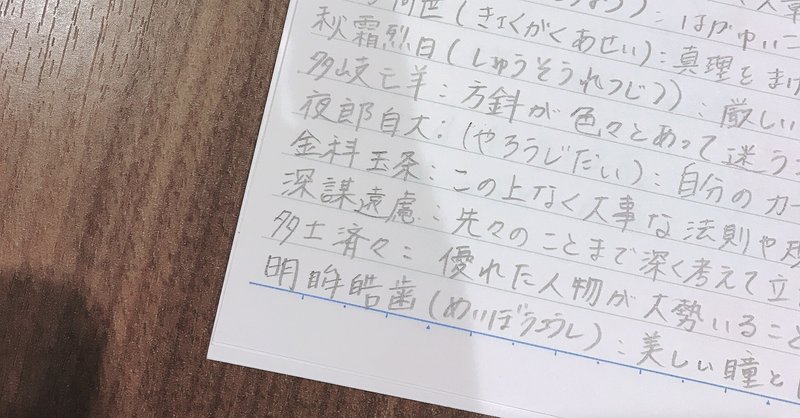 世(きょくがくあせい):真理をまげ
秋霜烈日(しゅうそうれつじつ):厳しい
多岐亡羊:方針が色々とあって迷う
夜郎自大:(やろうじだい):自分のカ
金科玉条:この上なく大事な法則や規
深謀遠慮:先々のことまで深く考えて立
多士済々:優れた人物が大勢いること
明眸皓歯(めいぼうこうし):美しい瞳と